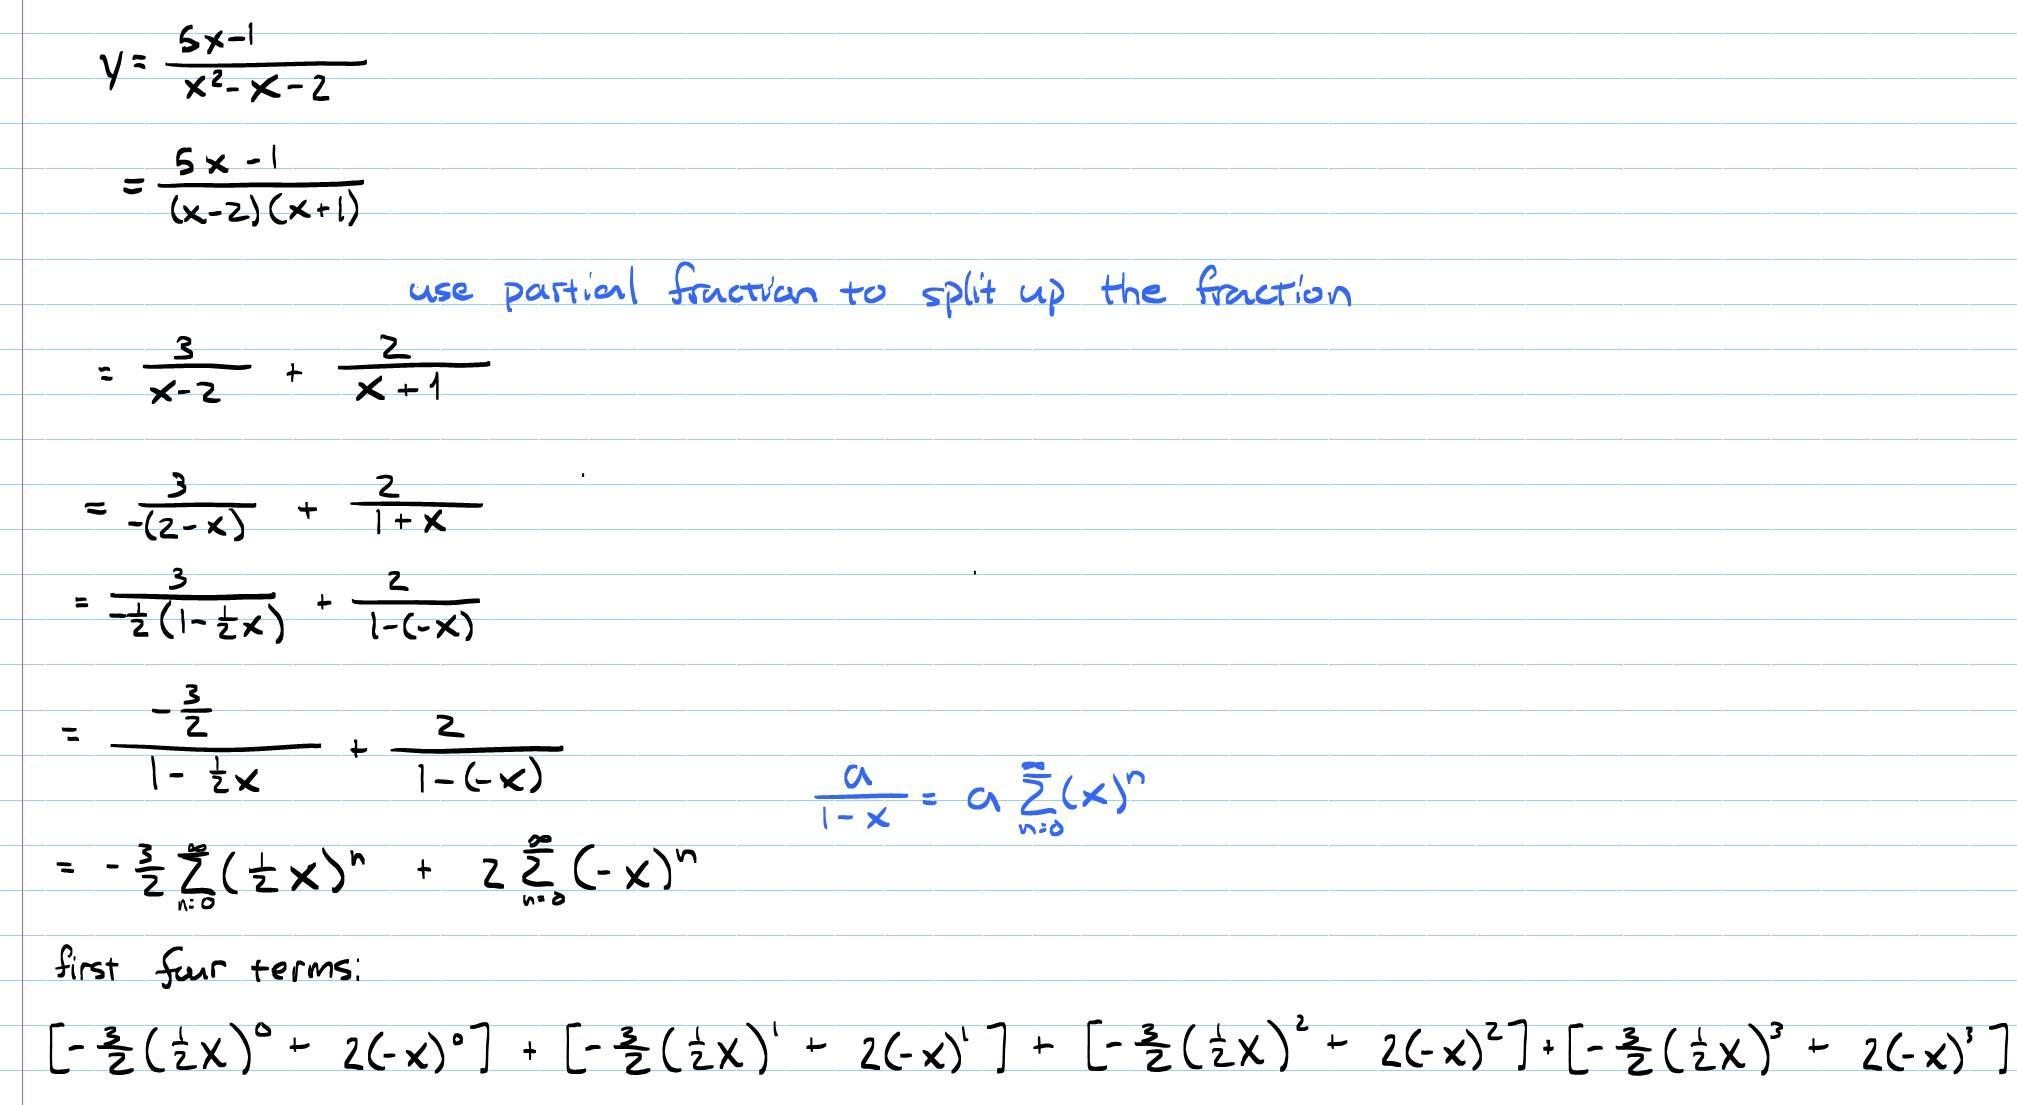 y = \frac{5x-1}{x^2-x-2}
= \frac{5x-1}{(x-2)(x+1)}
use partial fraction to split up the fraction
= \frac{3}{x-2} + \frac{2}{x+1}
= \frac{3}{-(2-x)} + \frac{2}{1+x}
= \frac{3}{-\frac{1}{2}(1-\frac{1}{2}x)} + \frac{2}{1-(-x)}
= \frac{-\frac{3}{2}}{1-\frac{1}{2}x} + \frac{2}{1-(-x)}
\frac{a}{1-x} = a \sum_{n=0}^{\infty} (x)^n
= -\frac{3}{2} \sum_{n=0}^{\infty} (\frac{1}{2}x)^n + 2 \sum_{n=0}^{\infty} (-x)^n
first four terms:
[-\frac{3}{2}(\frac{1}{2}x)^0 + 2(-x)^0] + [-\frac{3}{2}(\frac{1}{2}x)^1 + 2(-x)^1] + [-\frac{3}{2}(\frac{1}{2}x)^2 + 2(-x)^2] + [-\frac{3}{2}(\frac{1}{2}x)^3 + 2(-x)^3]